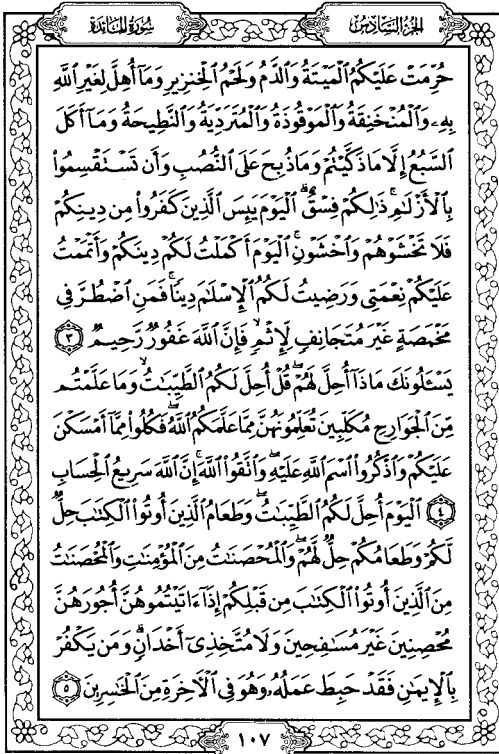 سُورَةُ الْمَائِدَةِ
الجُزْءُ السَّادِسُ
حُرِّمَتْ عَلَيْكُمُ ٱلْمَيْتَةُ وَٱلدَّمُ وَلَحْمُ ٱلْخِنزِيرِ وَمَآ أُهِلَّ لِغَيْرِ ٱللَّهِ
بِهِۦ وَٱلْمُنْخَنِقَةُ وَٱلْمَوْقُوذَةُ وَٱلْمُتَرَدِّيَةُ وَٱلنَّطِيحَةُ وَمَآ أَكَلَ
ٱلسَّبُعُ إِلَّا مَا ذَكَّيْتُمْ وَمَا ذُبِحَ عَلَى ٱلنُّصُبِ وَأَن تَسْتَقْسِمُوا۟
بِٱلْأَزْلَٰمِ ۚ ذَٰلِكُمْ فِسْقٌ ۗ ٱلْيَوْمَ يَئِسَ ٱلَّذِينَ كَفَرُوا۟ مِن دِينِكُمْ
فَلَا تَخْشَوْهُمْ وَٱخْشَوْنِ ۚ ٱلْيَوْمَ أَكْمَلْتُ لَكُمْ دِينَكُمْ وَأَتْمَمْتُ
عَلَيْكُمْ نِعْمَتِى وَرَضِيتُ لَكُمُ ٱلْإِسْلَٰمَ دِينًا ۚ فَمَنِ ٱضْطُرَّ فِى
مَخْمَصَةٍ غَيْرَ مُتَجَانِفٍ لِّإِثْمٍ ۙ فَإِنَّ ٱللَّهَ غَفُورٌ رَّحِيمٌ ٣
يَسْـَٔلُونَكَ مَاذَآ أُحِلَّ لَهُمْ ۖ قُلْ أُحِلَّ لَكُمُ ٱلطَّيِّبَٰتُ ۙ وَمَا عَلَّمْتُم
مِّنَ ٱلْجَوَارِحِ مُكَلِّبِينَ تُعَلِّمُونَهُنَّ مِمَّا عَلَّمَكُمُ ٱللَّهُ ۖ فَكُلُوا۟ مِمَّآ أَمْسَكْنَ
عَلَيْكُمْ وَٱذْكُرُوا۟ ٱسْمَ ٱللَّهِ عَلَيْهِ ۖ وَٱتَّقُوا۟ ٱللَّهَ ۚ إِنَّ ٱللَّهَ سَرِيعُ ٱلْحِسَابِ
٤ ٱلْيَوْمَ أُحِلَّ لَكُمُ ٱلطَّيِّبَٰتُ ۖ وَطَعَامُ ٱلَّذِينَ أُوتُوا۟ ٱلْكِتَٰبَ حِلٌّ
لَّكُمْ وَطَعَامُكُمْ حِلٌّ لَّهُمْ ۖ وَٱلْمُحْصَنَٰتُ مِنَ ٱلْمُؤْمِنَٰتِ وَٱلْمُحْصَنَٰتُ
مِنَ ٱلَّذِينَ أُوتُوا۟ ٱلْكِتَٰبَ مِن قَبْلِكُمْ إِذَآ ءَاتَيْتُمُوهُنَّ أُجُورَهُنَّ
مُحْصِنِينَ غَيْرَ مُسَٰفِحِينَ وَلَا مُتَّخِذِىٓ أَخْدَانٍ ۗ وَمَن يَكْفُرْ
بِٱلْإِيمَٰنِ فَقَدْ حَبِطَ عَمَلُهُۥ وَهُوَ فِى ٱلْءَاخِرَةِ مِنَ ٱلْخَٰسِرِينَ ٥
١٠٧